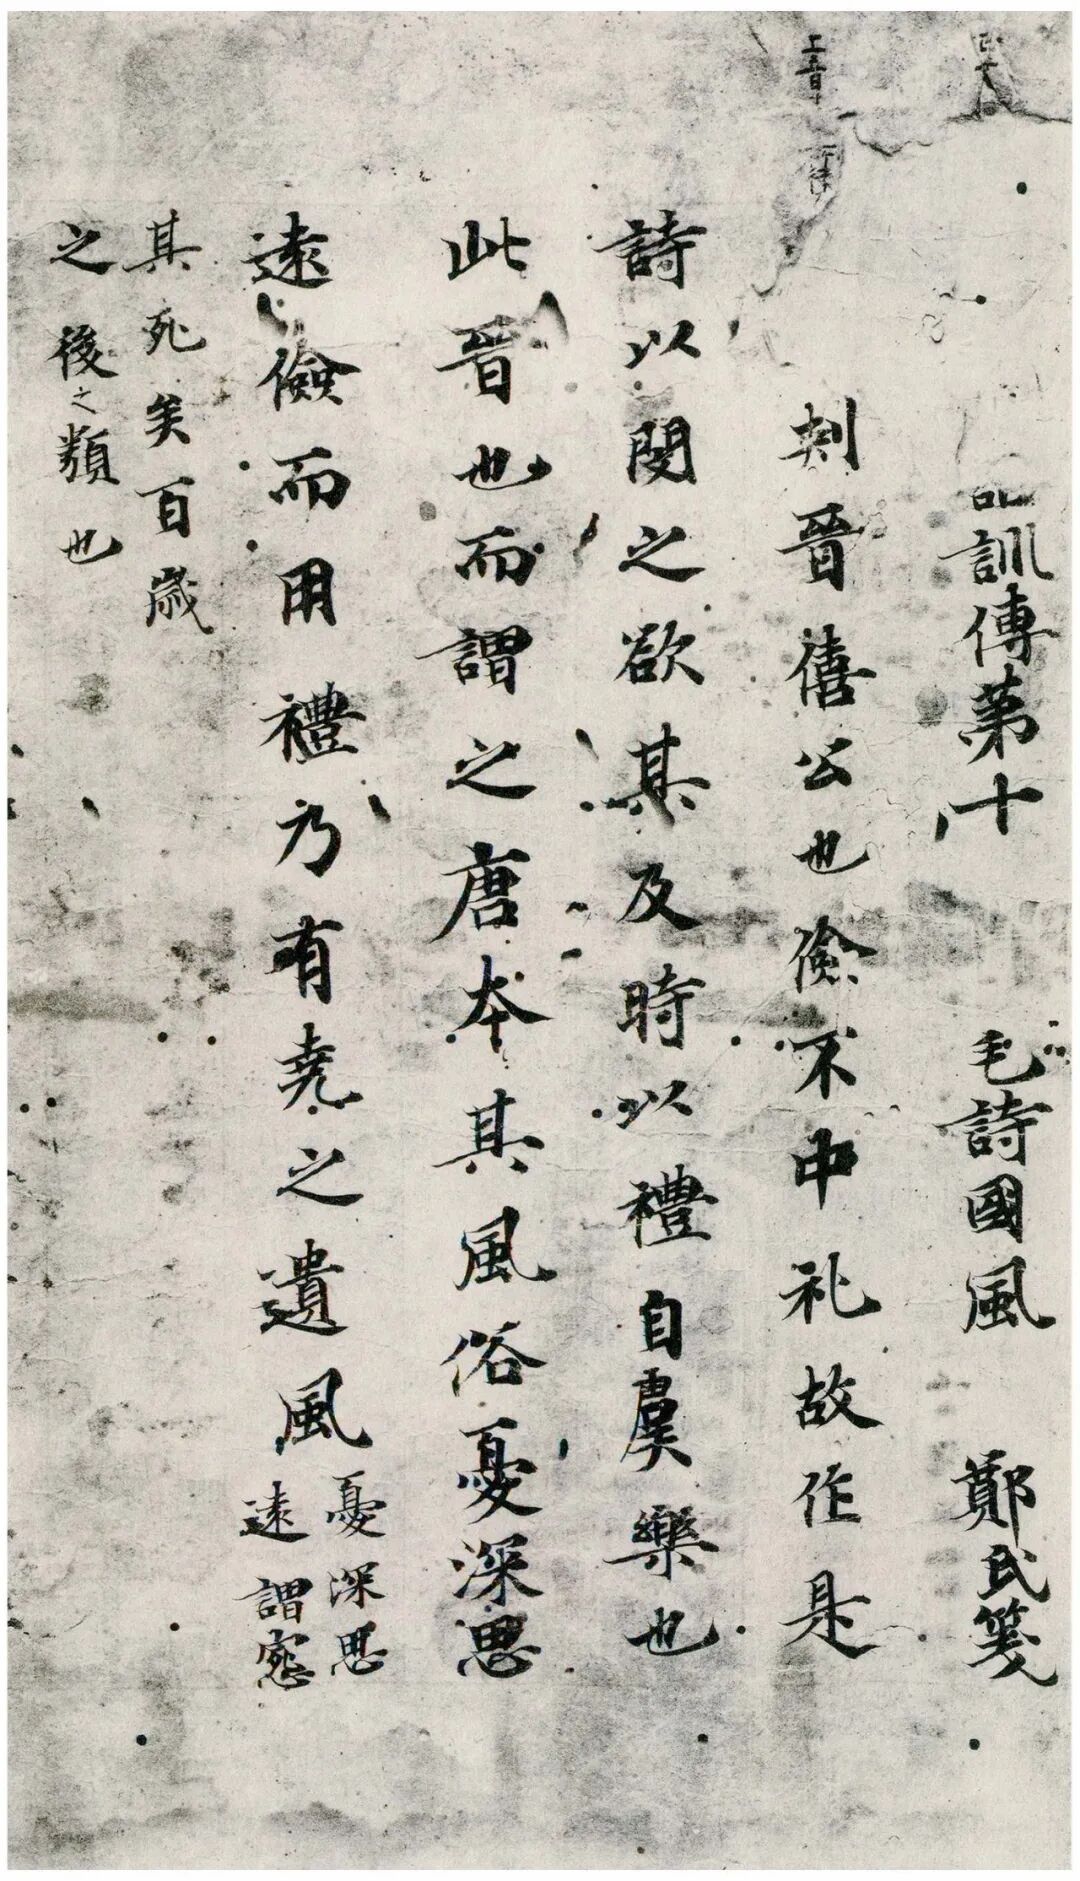 訓傳第十 毛詩國風 鄭氏箋
刾晉僖公也儉不中礼故作是
詩以閔之欲其及時以禮自虞樂也
此晉也而謂之唐本其風俗憂深思
遠儉而用禮乃有堯之遺風 憂深思
遠謂宛
其死矣百歲
之後之類也